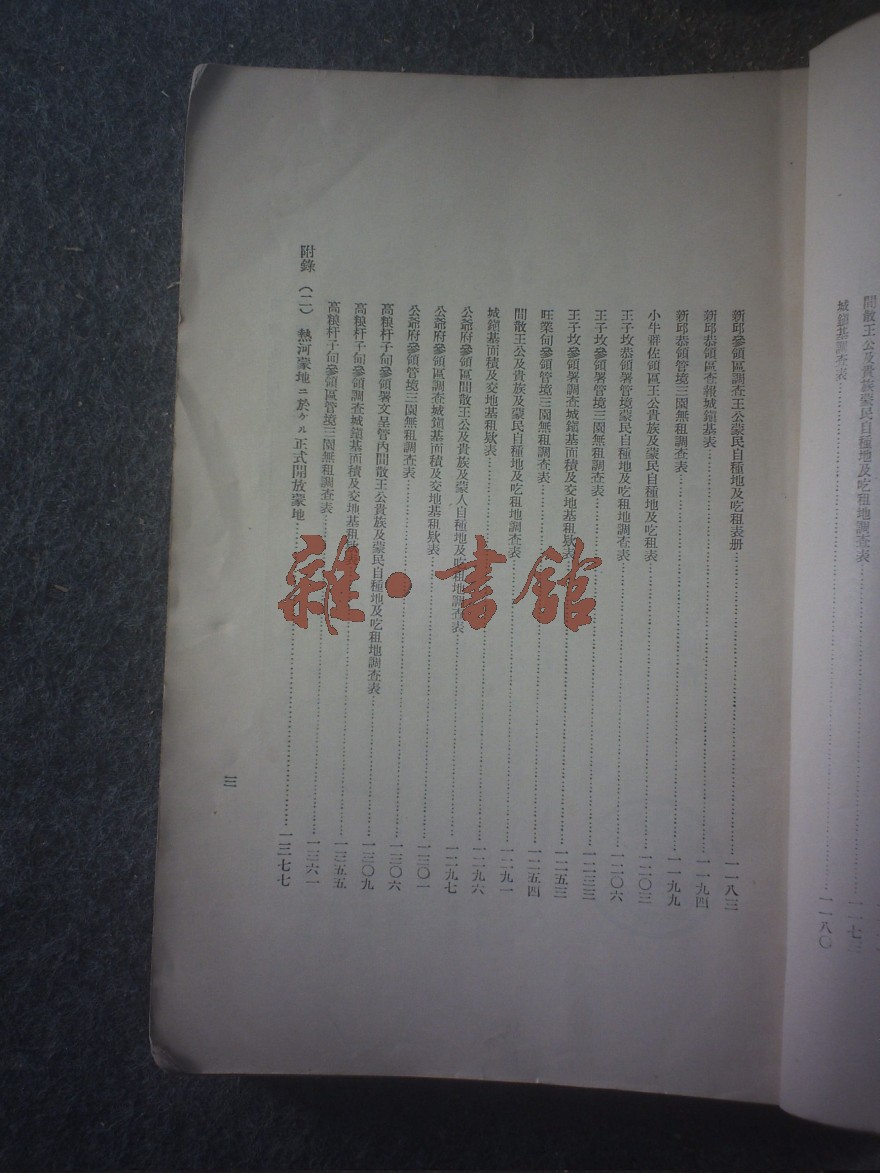 閒散王公及貴族蒙民自種地及吃租地調查表……一一七三
城鎭基調查表……一一八〇
新邱參領區調查王公蒙民自種地及吃租表册……一一八三
新邱恭領區查報城鎭基表……一一九四
新邱恭領管境三園無租調查表……一一九九
小牛群佐領區王公貴族及蒙民自種地及吃租表……一二〇三
王子坟恭領署管境蒙民自種地及吃租地調查表……一二〇六
王子坟參領署管境三園無租調查表……一二三三
王子坟參領署調查城鎭基面積及交地基租欵表……一二五三
旺業甸參領管境三園無租調查表……一二五四
閒散王公及貴族及蒙民自種地及吃租地調查表……一二九一
城鎭基面積及交地基租欵表……一二九六
公爺府參領區閒散王公及貴族及蒙人自種地及吃租地調查表……一二九七
公爺府參領區調查城鎭基面積及交地基租欵表……一三〇一
公爺府參領管境三園無租調查表……一三〇六
高粮杆子甸參領署文呈管內閒散王公貴族及蒙民自種地及吃租地調查表……一三〇九
高粮杆子甸參領調查城鎭基面積及交地基租欵表……一三五五
高粮杆子甸參領區管境三園無租調查表……一三六一
附錄（二）熱河蒙地ニ於ケル正式開放蒙地……一三七七
三
雜·書館